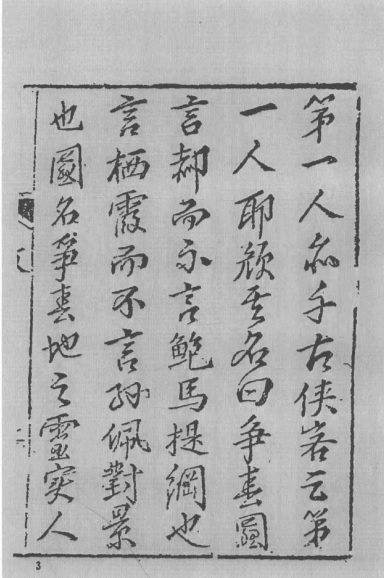 第一人亦千古俠客之第
一人耶顏其名曰爭春園
言郝而不言鮑馬提綱也
言栖霞而不言孫佩對景
也園名爭春地之靈實人
3